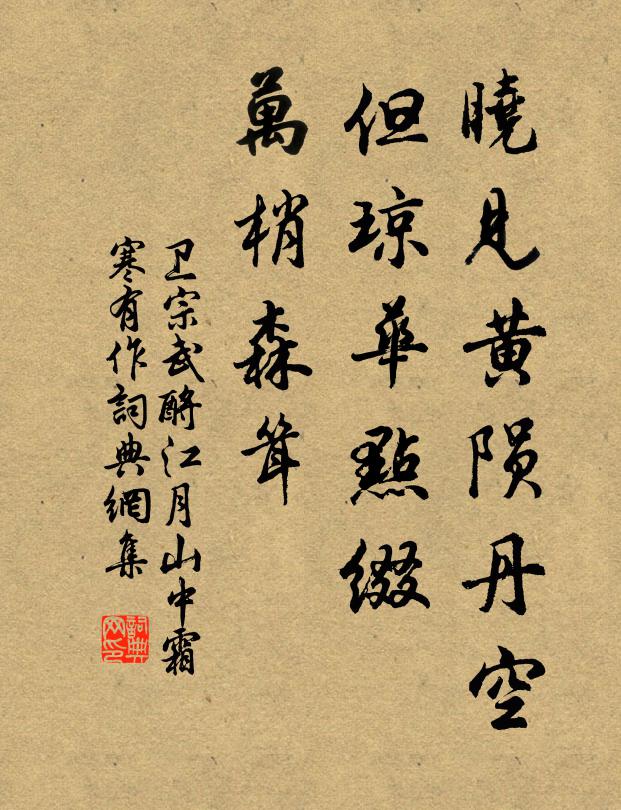 曉見黄陨丹空
但琼華點綴
萬梢森耸
卫宗武酹江月山中霜
寒有作詞典網集
詞典网印